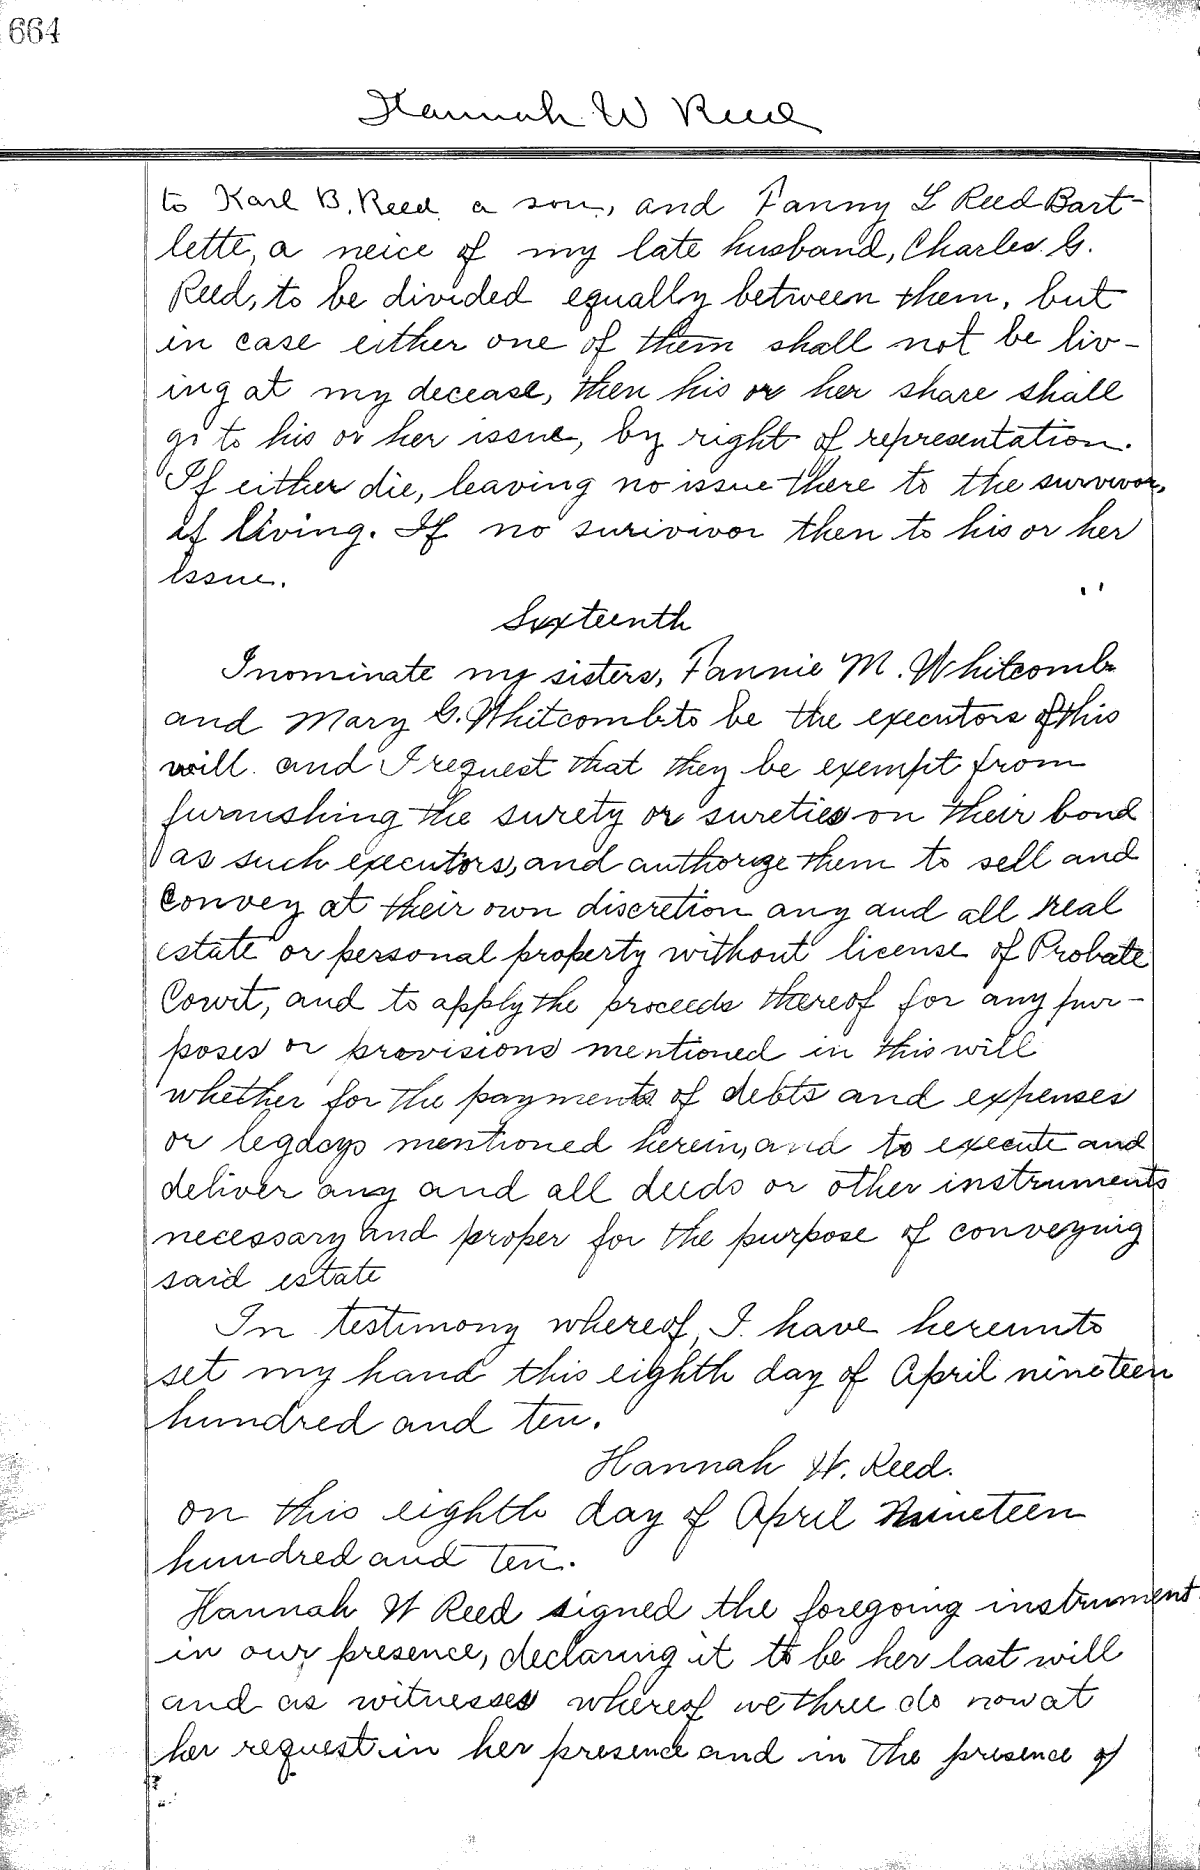 664
Hannah W Reed
to Karl B. Reed a son, and Fanny L Reed Bart-
lette, a neice of my late husband, Charles G.
Reed, to be divided equally between them, but
in case either one of them shall not be liv-
ing at my decease, then his or her share shall
go to his or her issue, by right of representation.
If either die, leaving no issue there to the survivor,
if living. If no surivivor then to his or her
issue.
Sixteenth
I nominate my sisters, Fannie M. Whitcomb
and Mary G. Whitcomb to be the executors of this
will and I request that they be exempt from
furnishing the surety or sureties on their bond
as such executors, and authorize them to sell and
Convey at their own discretion any and all real
estate or personal property without license of Probate
Court, and to apply the proceeds thereof for any pur-
poses or provisions mentioned in this will
whether for the payments of debts and expenses
or legacys mentioned herein, and to execute and
deliver any and all deeds or other instruments
necessary and proper for the purpose of conveying
said estate
In testimony whereof, I have hereunto
set my hand this eighth day of April nineteen
hundred and ten.
Hannah W. Reed.
on this eighth day of April Nineteen
hundred and ten.
Hannah W Reed signed the foregoing instrument
in our presence, declaring it to be her last will
and as witnesses whereof we three do now at
her request in her presence and in the presence of